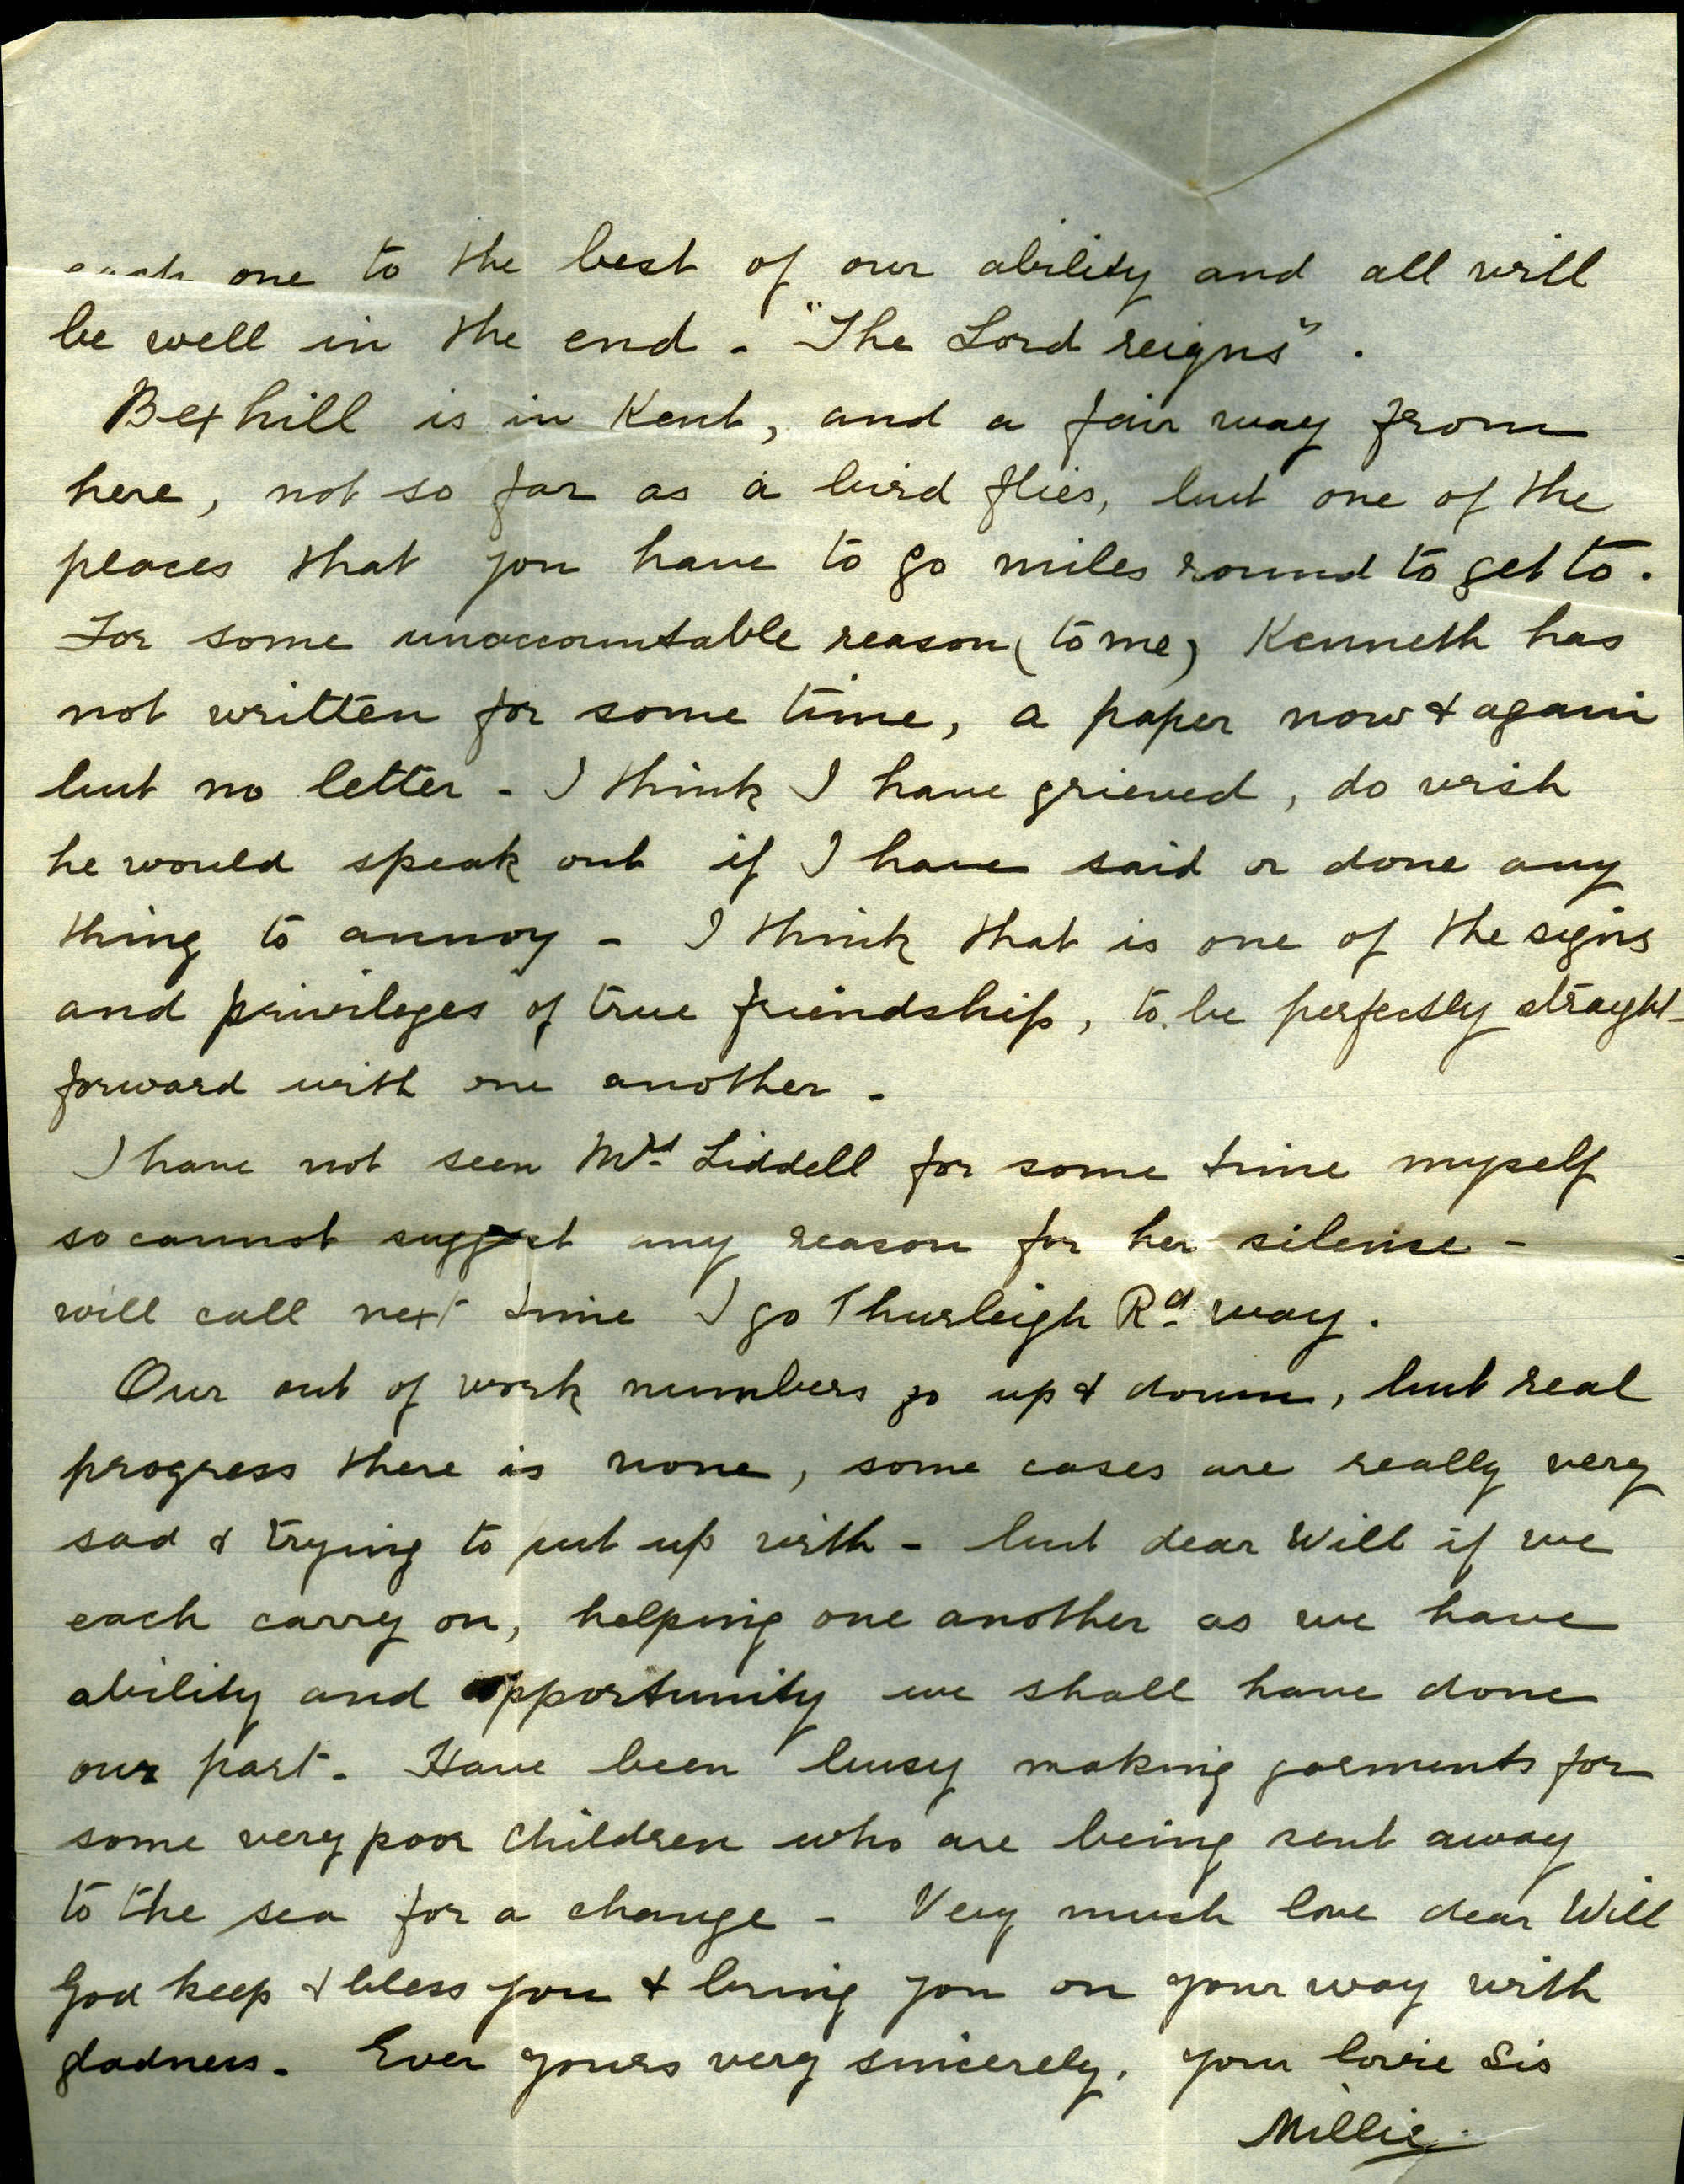 each one to the best of our ability and all will
be well in the end - "The Lord reigns".
Bexhill is in Kent, and a fair way from
here, not so far as a bird flies, but one of the
places that you have to go miles round to get to.
For some unaccountable reason (to me) Kenneth has
not written for some time, a paper now & again
but no letter - I think I have grieved, do wish
he would speak out if I have said or done any
thing to annoy - I think that is one of the signs
and privileges of true friendship, to be perfectly straight-
forward with one another -
I have not seen Mrs Liddell for some time myself
so cannot suggest any reason for her silense -
will call next time I go Thurleigh Rd way.
Our out of work numbers go up & down, but real
progress there is none, some cases are really very
sad & trying to put up with - but dear Will if we
each carry on, helping one another as we have
ability and opportunity we shall have done
our part - Have been busy making garments for
some very poor children who are being sent away
to the sea for a change - Very much love dear Will
God keep & bless you & bring you on your way with
gladness - Ever yours very sincerely, your lovie Sis
Millie